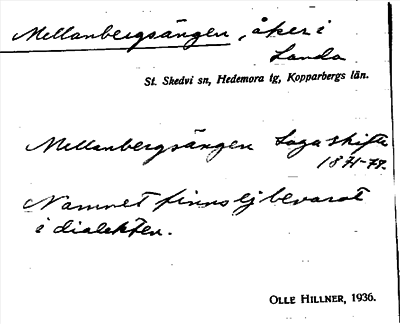 Mellanbergsängen, åker i
Landa
St. Skedvi sn, Hedemora tg, Kopparbergs län.
Mellanbergsängen Laga skifte
1871-79.
Namnet finns ej bevarat
i dialekten.
OLLE HILLNER, 1936.